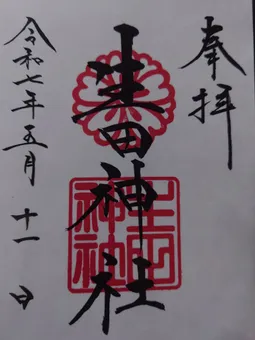 奉拝
生田神社
令和七年五月十一日
生田
神社